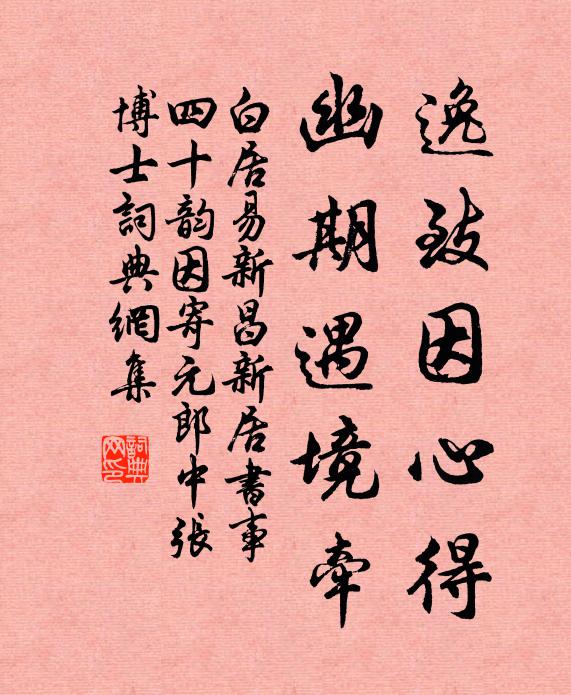 逸致因心得
幽期遇境牽
白居易新昌新居書事
四十韵因寄元郎中張
博士詞典網集
詞典
网印